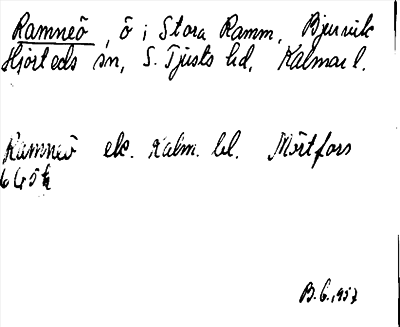 Ramneö, ö i Stora Ramm, Bjursvik
Hjorteds sn, S. Tjusts hd, Kalmar l.
Ramneö ek. Kalm. bl. Mörtfors
B. G. 1957